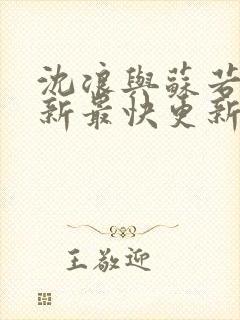 沈浪與蘇若
新最快更新
王敬迎